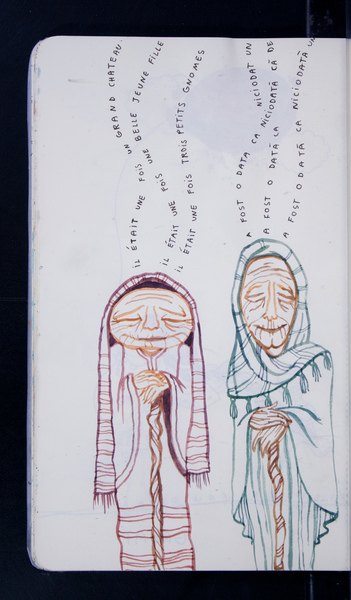 IL ÉTAIT UNE FOIS UN GRAND CHATEAU.
IL ÉTAIT UNE FOIS UNE BELLE JEUNE FILLE
IL ÉTAIT UNE FOIS TROIS PETITS GNOMES
A FOST O DATA CA NICIODAT UN
A FOST O DATĂ CA NICIODATĂ CĂ DE
A FOST ODATĂ CA NICIODATĂ